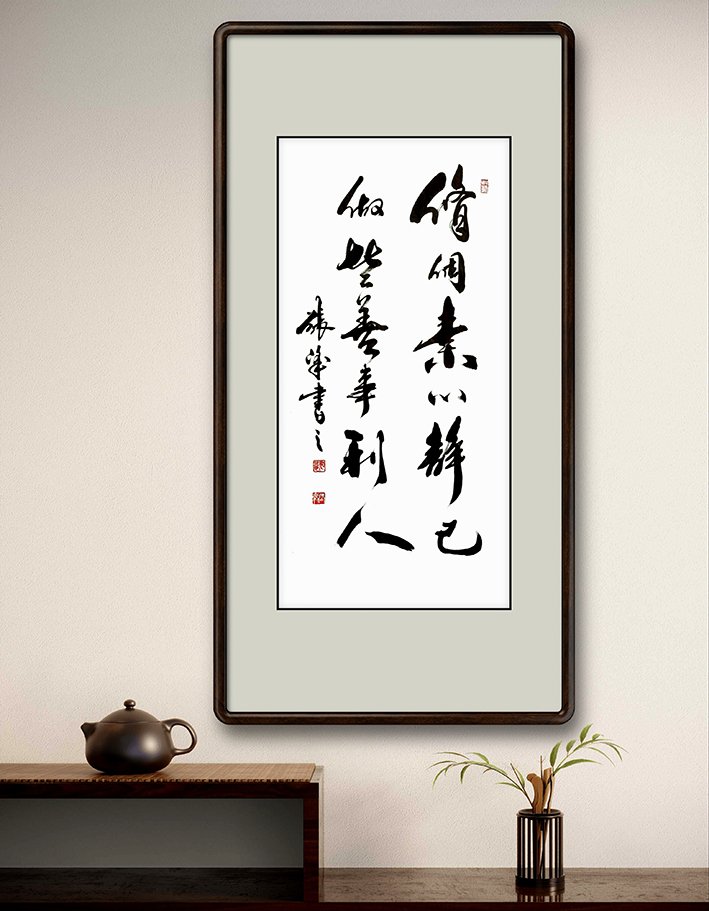 脩個素心靜己
做些善事利人
張 書之